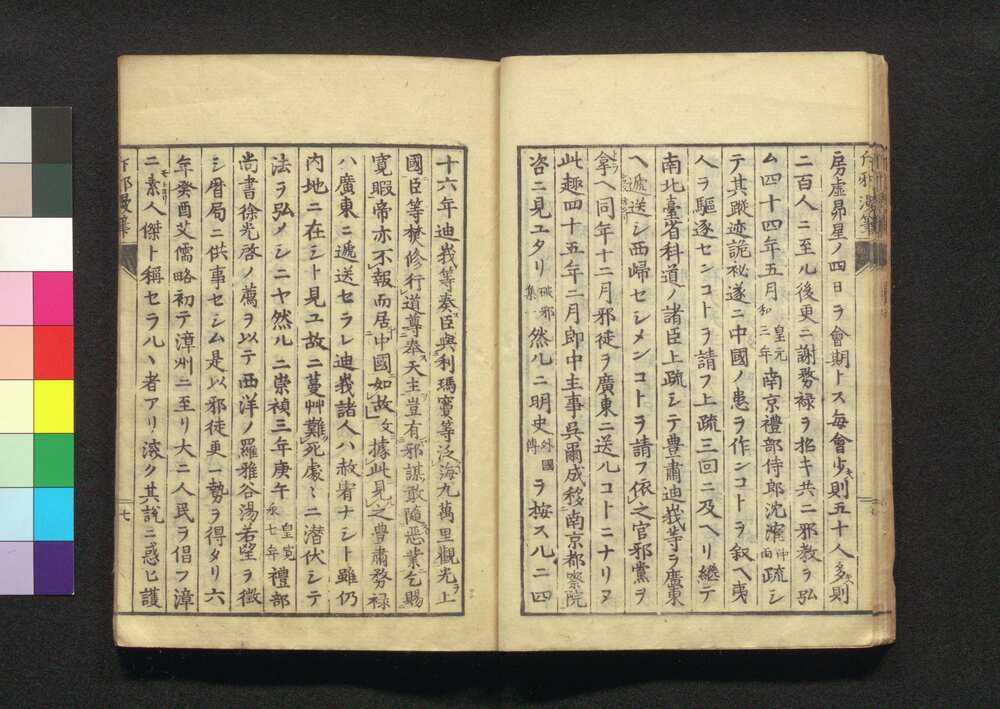 房虚昴星ノ四日ヲ會期トス毎會少則五十人多則
二百人ニ至ル後更ニ謝務禄ヲ招キ共ニ邪教ヲ弘
ム四十四年五月皇元和三年南京禮部侍郎沈㴶仲雨疏シ
テ其蹤迹詭祕遂ニ中國ノ患ヲ作ンコトヲ叙ヘ夷
人ヲ驅逐センコトヲ請フ上疏三回ニ及ヘリ継テ
南北臺省科道ノ諸臣上疏シテ豊肅迪莪等ヲ廣東
ヘ遞送シ西歸セシメンコトヲ請フ依之官邪黨ヲ
拿ヘ同年十二月邪徒ヲ廣東ニ送ルコトニナリヌ
此趣四十五年二月郎中主事吳爾成移南京都察院
咨ニ見ユタリ破邪集一然ルニ明史外國傳ヲ按スルニ四
十六年迪莪等奏臣與利瑪竇等泛海九萬里觀光上
國臣等焚修行道尊奉天主豈有邪謀敢隨惡業乞賜
寛暇帝亦不報而居中國如故文據此見之豊肅務禄
ハ廣東ニ遞送セラレ迪莪諸人ハ赦宥ナシト雖仍
内地ニ在シト見ユ故ニ蔓艸難死處々ニ潜伏シテ
法ヲ弘メシニヤ然ルニ崇禎三年庚午皇寛永七年禮部
尚書徐光啓ノ薦ヲ以テ西洋ノ羅雅谷湯若望ヲ徴
シ暦局ニ供事セシム是以邪徒更一勢ヲ得タリ六
年癸酉艾儒略初テ漳州ニ至リ大ニ人民ヲ倡フ漳
ニ素人傑ト稱セラルヽ者アリ深ク其説ニ惑ヒ護
七